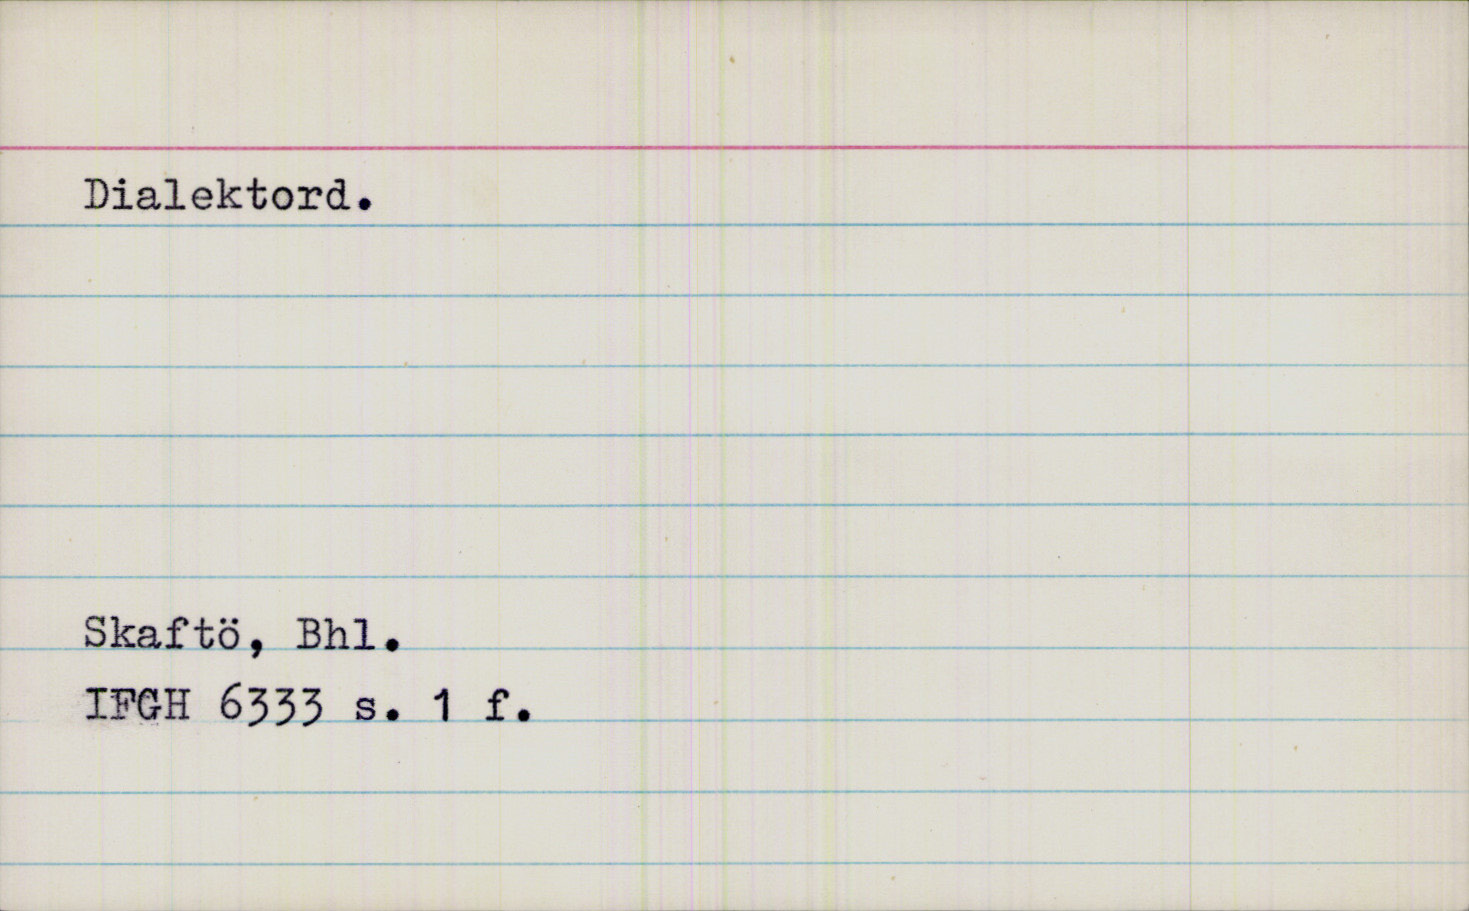 Dialektord.
Skaftö, Bhl.
IFGH 6333 s. 1 f.